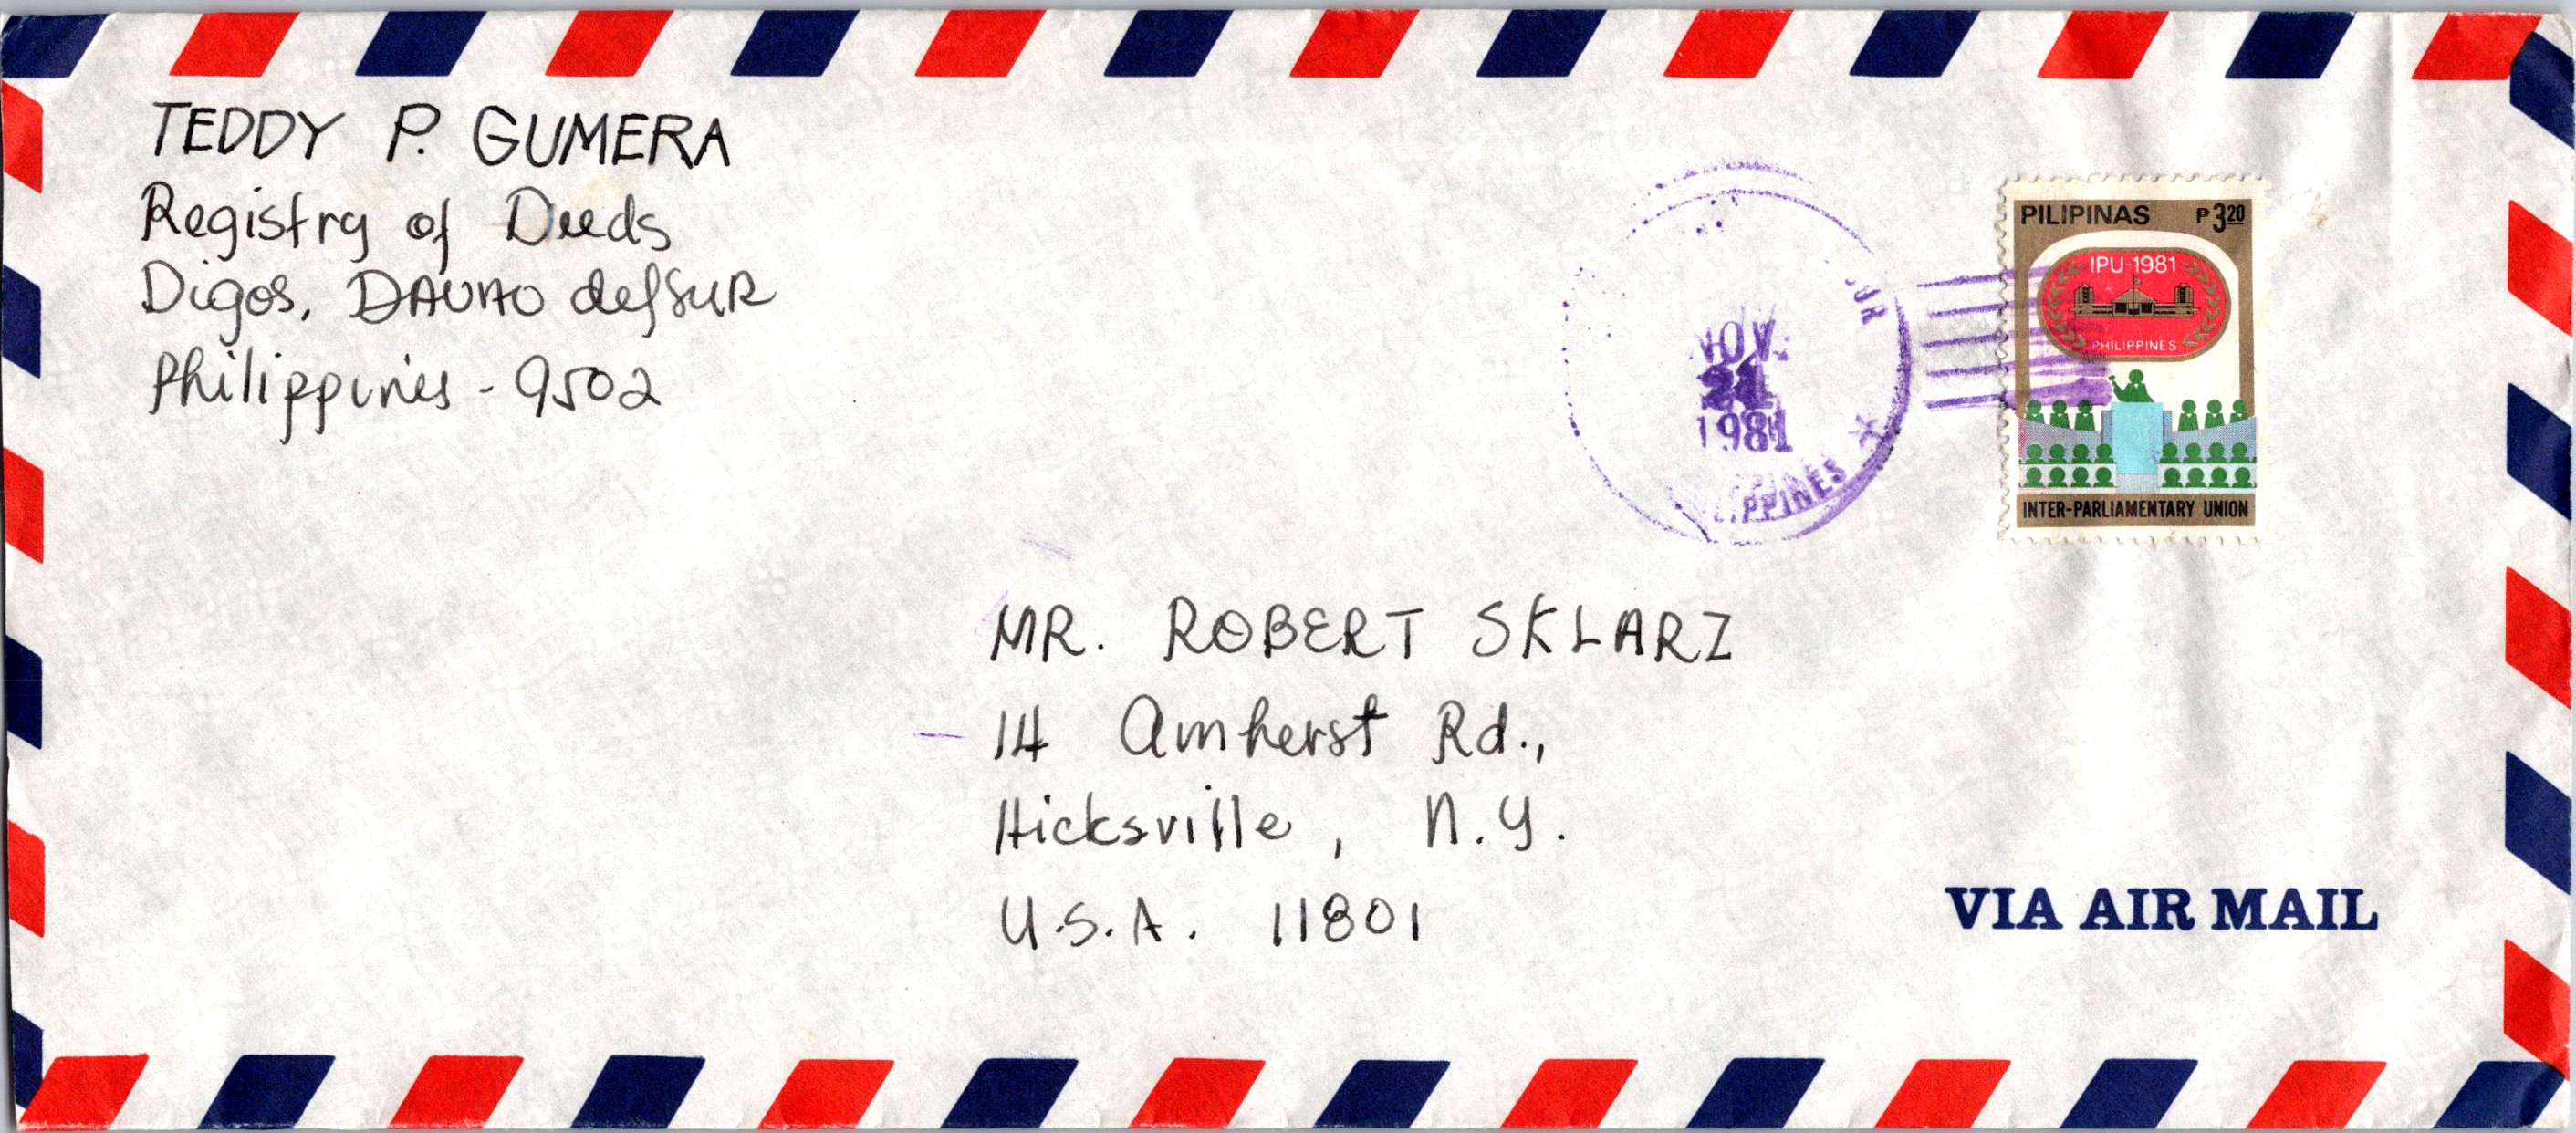 TEDDY P. GUMERA
Registry of Deeds
Digos, DAVAO del SUR
Philippines - 9502
SUR
NOV.
1981
PHILIPPINES
PILIPINAS ₱3.20
IPU-1981
PHILIPPINES
INTER-PARLIAMENTARY UNION
MR. ROBERT SKLARZ
14 Amherst Rd.,
Hicksville, N.Y.
U.S.A. 11801
VIA AIR MAIL